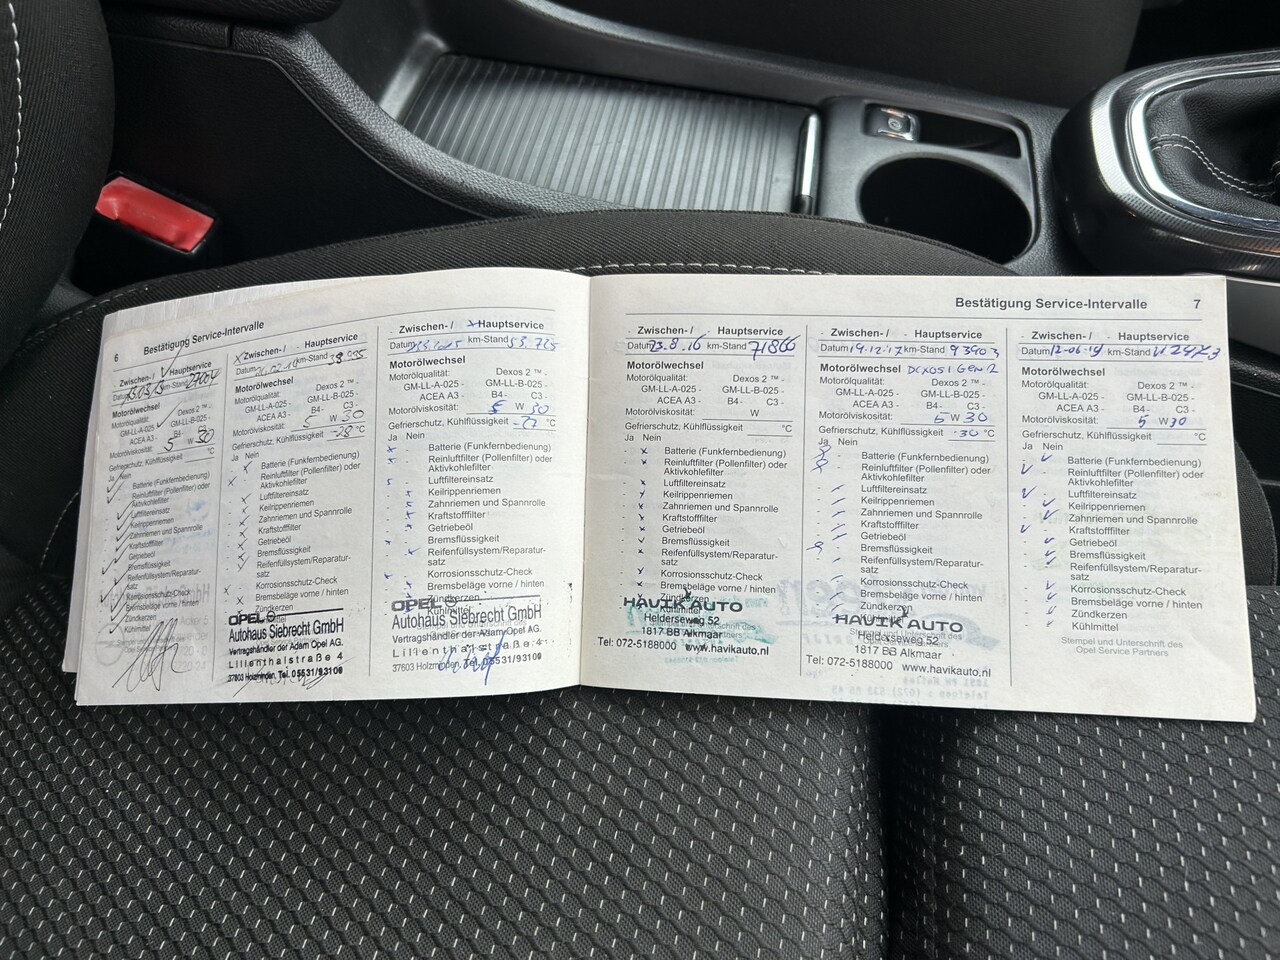 6 Bestätigung Service-Intervalle
Zwischen-/ Hauptservice
Datum km-Stand
Motorölwechsel
Motorölqualität: Dexos 2 ™ -
GM-LL-A-025 - GM-LL-B-025 -
ACEA A3 - B4-
Motorölviskosität: 5 W 30
Gefrierschutz, Kühlflüssigkeit °C
Ja Nein
Batterie (Funkfernbedienung)
Reinluftfilter (Pollenfilter) oder
Aktivkohlefilter
Luftfiltereinsatz
Keilrippenriemen
Zahnriemen und Spannrolle
Kraftstofffilter
Getriebeöl
Bremsflüssigkeit
Reifenfüllsystem/Reparatur-
satz
Korrosionsschutz-Check
Bremsbeläge vorne / hinten
Zündkerzen
Kühlmittel
x Zwischen-/ Hauptservice
Datum km-Stand
Motorölwechsel
Motorölqualität: Dexos 2 ™ -
GM-LL-A-025 - GM-LL-B-025 -
ACEA A3 - B4- C3 -
Motorölviskosität: 5 W 30
Gefrierschutz, Kühlflüssigkeit -28 °C
Ja Nein
Batterie (Funkfernbedienung)
Reinluftfilter (Pollenfilter) oder
Aktivkohlefilter
Luftfiltereinsatz
Keilrippenriemen
Zahnriemen und Spannrolle
Kraftstofffilter
Getriebeöl
Bremsflüssigkeit
Reifenfüllsystem/Reparatur-
satz
Korrosionsschutz-Check
Bremsbeläge vorne / hinten
Zündkerzen
OPEL
Autohaus Siebrecht GmbH
Vertragshändler der Adam Opel AG.
Lilienthalstraße 4
37603 Holzminden, Tel. 05531/93100
Zwischen-/ x Hauptservice
Datum km-Stand 53.725
Motorölwechsel
Motorölqualität: Dexos 2 ™ -
GM-LL-A-025 - GM-LL-B-025 -
ACEA A3 - B4- C3 -
Motorölviskosität: 5 W 30
Gefrierschutz, Kühlflüssigkeit -27 °C
Ja Nein
Batterie (Funkfernbedienung)
Reinluftfilter (Pollenfilter) oder
Aktivkohlefilter
Luftfiltereinsatz
Keilrippenriemen
Zahnriemen und Spannrolle
Kraftstofffilter
Getriebeöl
Bremsflüssigkeit
Reifenfüllsystem/Reparatur-
satz
Korrosionsschutz-Check
Bremsbeläge vorne / hinten
Zündkerzen
Kühlmittel
OPEL
Autohaus Siebrecht GmbH
Vertragshändler der Adam Opel AG.
Lilienthalstraße 4
37603 Holzminden, Tel. 05531/93100
Bestätigung Service-Intervalle 7
Zwischen-/ Hauptservice
Datum 23.8.16 km-Stand 71866
Motorölwechsel
Motorölqualität: Dexos 2 ™ -
GM-LL-A-025 - GM-LL-B-025 -
ACEA A3 - B4- C3 -
Motorölviskosität: W
Gefrierschutz, Kühlflüssigkeit °C
Ja Nein
Batterie (Funkfernbedienung)
Reinluftfilter (Pollenfilter) oder
Aktivkohlefilter
Luftfiltereinsatz
Keilrippenriemen
Zahnriemen und Spannrolle
Kraftstofffilter
Getriebeöl
Bremsflüssigkeit
Reifenfüllsystem/Reparatur-
satz
Korrosionsschutz-Check
Bremsbeläge vorne / hinten
Zündkerzen
Kühlmittel
HAVIK AUTO
Helderseweg 52
1817 BB Alkmaar
Tel: 072-5188000 www.havikauto.nl
Zwischen-/ Hauptservice
Datum 19.12.17 km-Stand 93903
Motorölwechsel DEXOS 1 Gen 2
Motorölqualität: Dexos 2 ™ -
GM-LL-A-025 - GM-LL-B-025 -
ACEA A3 - B4- C3 -
Motorölviskosität: 5 W 30
Gefrierschutz, Kühlflüssigkeit -30 °C
Ja Nein
Batterie (Funkfernbedienung)
Reinluftfilter (Pollenfilter) oder
Aktivkohlefilter
Luftfiltereinsatz
Keilrippenriemen
Zahnriemen und Spannrolle
Kraftstofffilter
Getriebeöl
Bremsflüssigkeit
Reifenfüllsystem/Reparatur-
satz
Korrosionsschutz-Check
Bremsbeläge vorne / hinten
Zündkerzen
HAVIK AUTO
Helderseweg 52
1817 BB Alkmaar
Tel: 072-5188000 www.havikauto.nl
Zwischen-/ Hauptservice
Datum 12-06-19 km-Stand
Motorölwechsel
Motorölqualität: Dexos 2 ™ -
GM-LL-A-025 - GM-LL-B-025 -
ACEA A3 - B4- C3 -
Motorölviskosität: 5 W 30
Gefrierschutz, Kühlflüssigkeit °C
Ja Nein
Batterie (Funkfernbedienung)
Reinluftfilter (Pollenfilter) oder
Aktivkohlefilter
Luftfiltereinsatz
Keilrippenriemen
Zahnriemen und Spannrolle
Kraftstofffilter
Getriebeöl
Bremsflüssigkeit
Reifenfüllsystem/Reparatur-
satz
Korrosionsschutz-Check
Bremsbeläge vorne / hinten
Zündkerzen
Kühlmittel
Stempel und Unterschrift des
Opel Service Partners